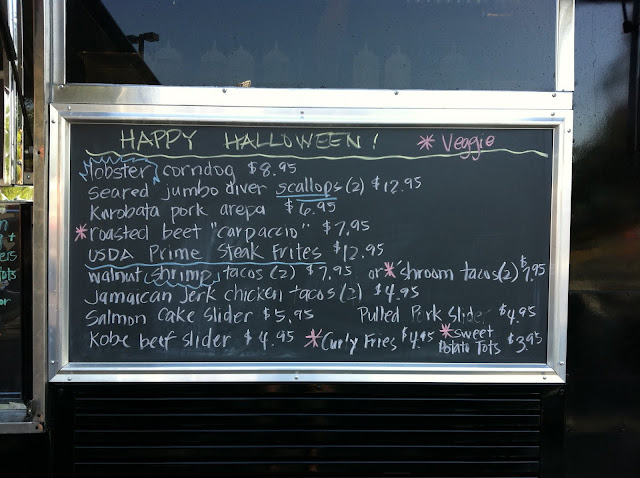 HAPPY HALLOWEEN! * Veggie
lobster corndog $8.95
Seared jumbo diver scallops (2) $12.95
Kurobata pork arepa $6.95
*roasted beet "carpaccio" $7.95
USDA Prime Steak Frites $12.95
walnut shrimp tacos (2) $7.95 or *'shroom tacos (2) $7.95
Jamaican Jerk chicken tacos (2) $4.95
Salmon Cake Slider $5.95 Pulled Pork Slider $4.95
Kobe beef slider $4.95 *Curly Fries $4.95 *Sweet Potato Tots $3.95